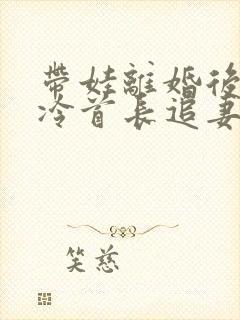 帶娃離婚後
冷首長追妻
笑慈